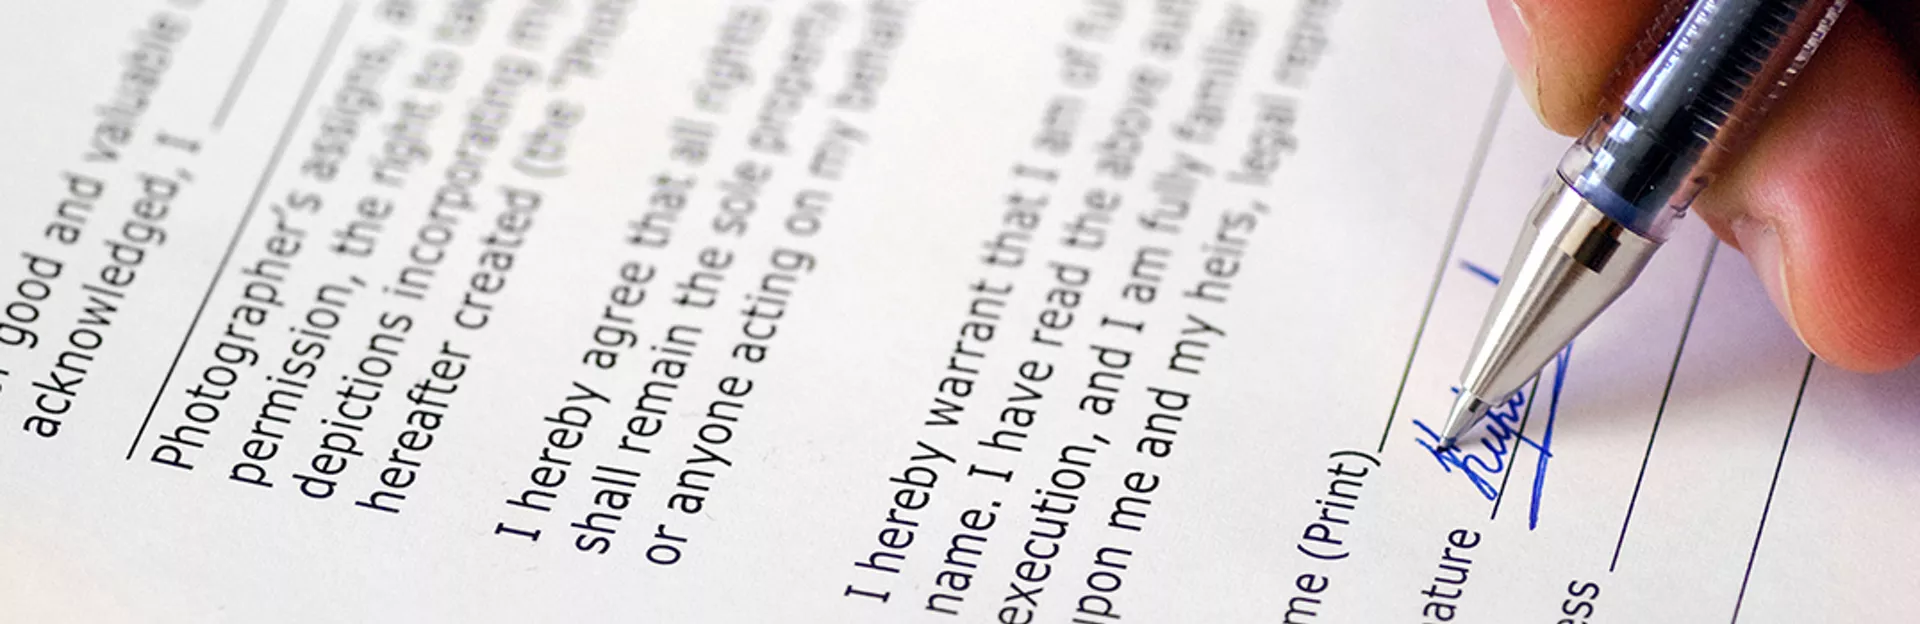 good and valuable
acknowledged, I
Photographer's assigns,
permission, the right to
depictions incorporating my
hereafter created (the "Phot
I hereby agree that all rights
shall remain the sole property
or anyone acting on my behalf
I hereby warrant that I am of fu
name. I have read the above
execution, and I am fully familiar
upon me and my heirs, legal repre
me (Print)
ature
ess